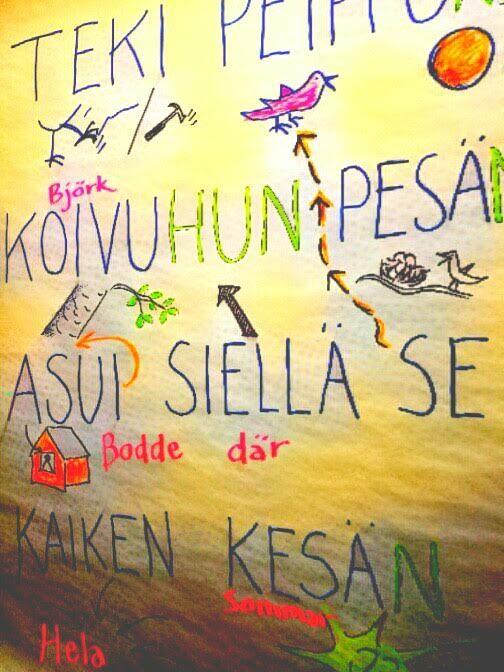 TEKI
Björk
KOIVUHUN PESÄN
ASUI SIELLÄ SE
Bodde där
KAIKEN KESÄN
Sommar
Hela